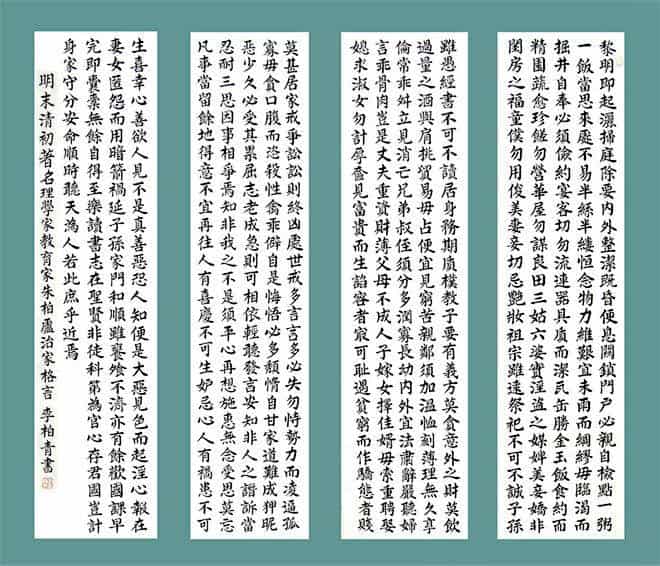 黎明即起灑掃庭除要内外整潔既昏便息關鎖門戶必親自檢點一粥
一飯當思來處不易半絲半縷恒念物力維艱宜未雨而綢繆毋臨渴而
掘井自奉必須儉約宴客切勿流連器具质而潔瓦缶勝金玉飯食約而
精園蔬愈珍饈勿營華屋勿謀良田三姑六婆實淫盜之媒婢美妾嬌非
閨房之福童僕勿用俊美妻妾切忌艷妝祖宗雖遠祭祀不可不誠子孫
雖愚經書不可不讀居身務期質樸教子要有義方莫貪意外之財莫飲
過量之酒與肩挑貿易毋占便宜見窮苦親鄰須加温恤刻薄理無久享
倫常乖舛立見消亡兄弟叔侄須分多潤寡長幼内外宜法肅辭嚴聽婦
言乖骨肉豈是丈夫重資財薄父母不成人子嫁女擇佳婿毋索重聘娶
媳求淑女勿計厚奩見富貴而生諂容者最可恥遇貧窮而作驕態者賤
莫甚居家戒爭訟訟則終凶處世戒多言言多必失勿恃勢力而凌逼孤
寡毋貪口腹而恣殺牲禽乖僻自是悔悟必多頹惰自甘家道難成狎昵
惡少久必受其累屈志老成急則可相依輕聽發言安知非人之譖訴當
忍耐三思因事相爭焉知非我之不是須平心再想施惠無念受恩莫忘
凡事當留餘地得意不宜再往人有喜慶不可生妒忌心人有禍患不可
生喜幸心善欲人見不是真善惡恐人知便是大惡見色而起淫心報在
妻女匿怨而用暗箭禍延子孫家門和順雖饔飧不濟亦有餘歡國課早
完即囊橐無餘自得至樂讀書志在聖賢非徒科第為官心存君國豈計
身家守分安命順時聽天為人若此庶乎近焉
明末清初著名理學家教育家朱柏廬治家格言 李柏青書